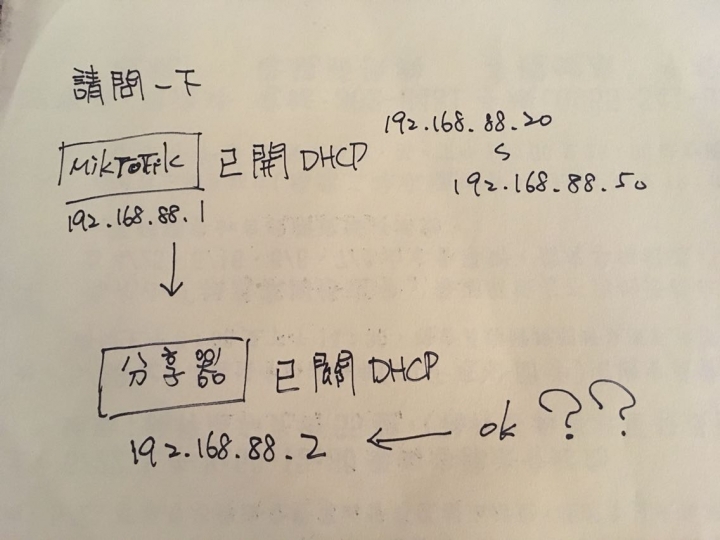 請問一下
MikroTik 已開 DHCP
192.168.88.20
S
192.168.88.50
192.168.88.1
分享器 已關 DHCP
192.168.88.2 ← ok ??